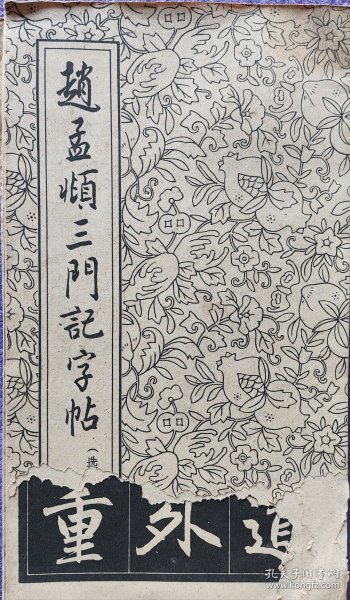 趙孟頫三門記字帖
选
重外
孔夫子旧书网
www.kongfz.com